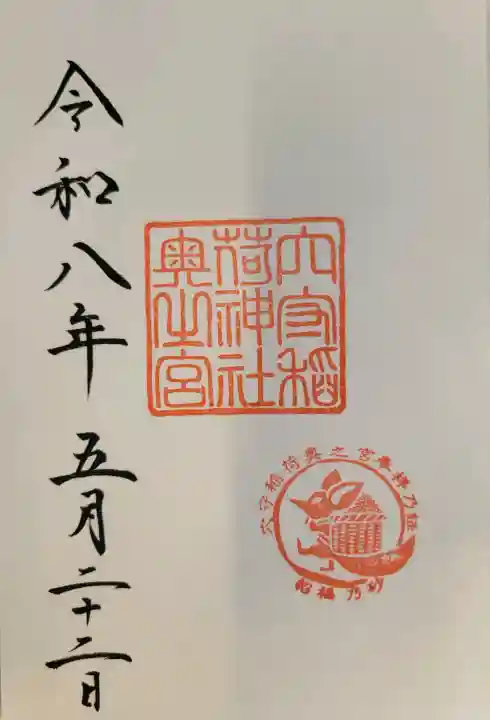 穴守稲
荷神社
奥之宮
穴守稲荷奥之宮奉拝乃証
招福乃砂
令和八年 五月二十二日